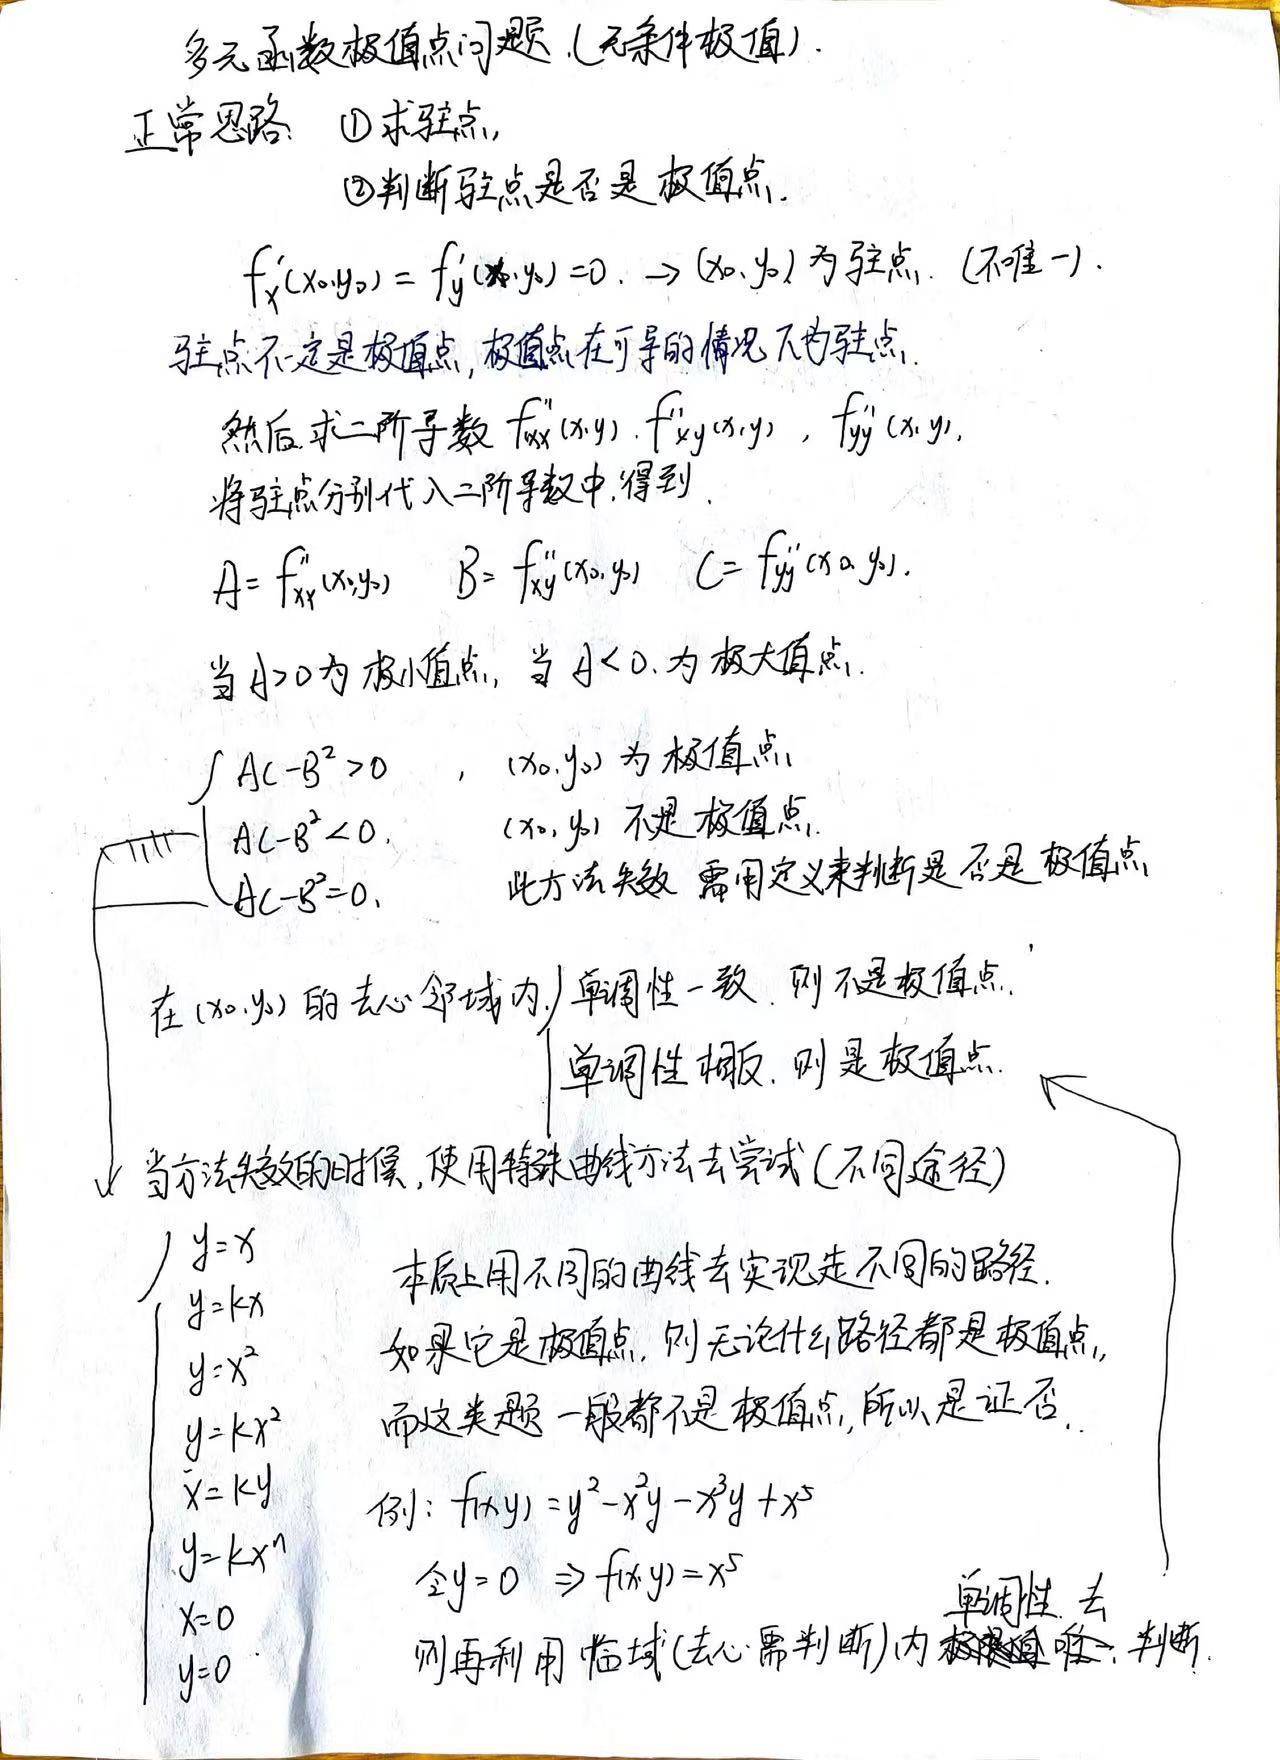 多元函数极值点问题.(无条件极值).
正常思路: ①求驻点,
②判断驻点是否是极值点.
f'x(x0,y0) = f'y(x0,y0)=0. → (x0,y0)为驻点. (不唯一).
驻点不一定是极值点,极值点在可导的情况下为驻点.
然后求二阶导数 f''xx(x,y). f''xy(x,y), f''yy(x,y).
将驻点分别代入二阶导数中,得到.
A= f''xx(x0,y0) B= f''xy(x0,y0) C= f''yy(x0,y0).
当A>0为极小值点, 当A<0.为极大值点.
AC-B²>0 , (x0,y0)为极值点
AC-B²<0. (x0,y0) 不是极值点.
AC-B²=0. 此方法失效 需用定义来判断是否是极值点
在(x0,y0)的去心邻域内. 单调性一致.则不是极值点.
单调性相反.则是极值点.
当方法失效的时候,使用特殊曲线方法去尝试(不同途径)
y=x
y=kx
y=x²
y=kx²
x=ky
y=kxⁿ
x=0
y=0
本质上用不同的曲线去实现走不同的路径.
如果它是极值点.则无论什么路径都是极值点,
而这类题一般都不是极值点,所以是证否.
例: f(x,y)=y²-x²y-x³y+x⁵
令y=0 ⇒ f(x,y)=x⁵
则再利用临域(去心需判断)内单调性去判断.